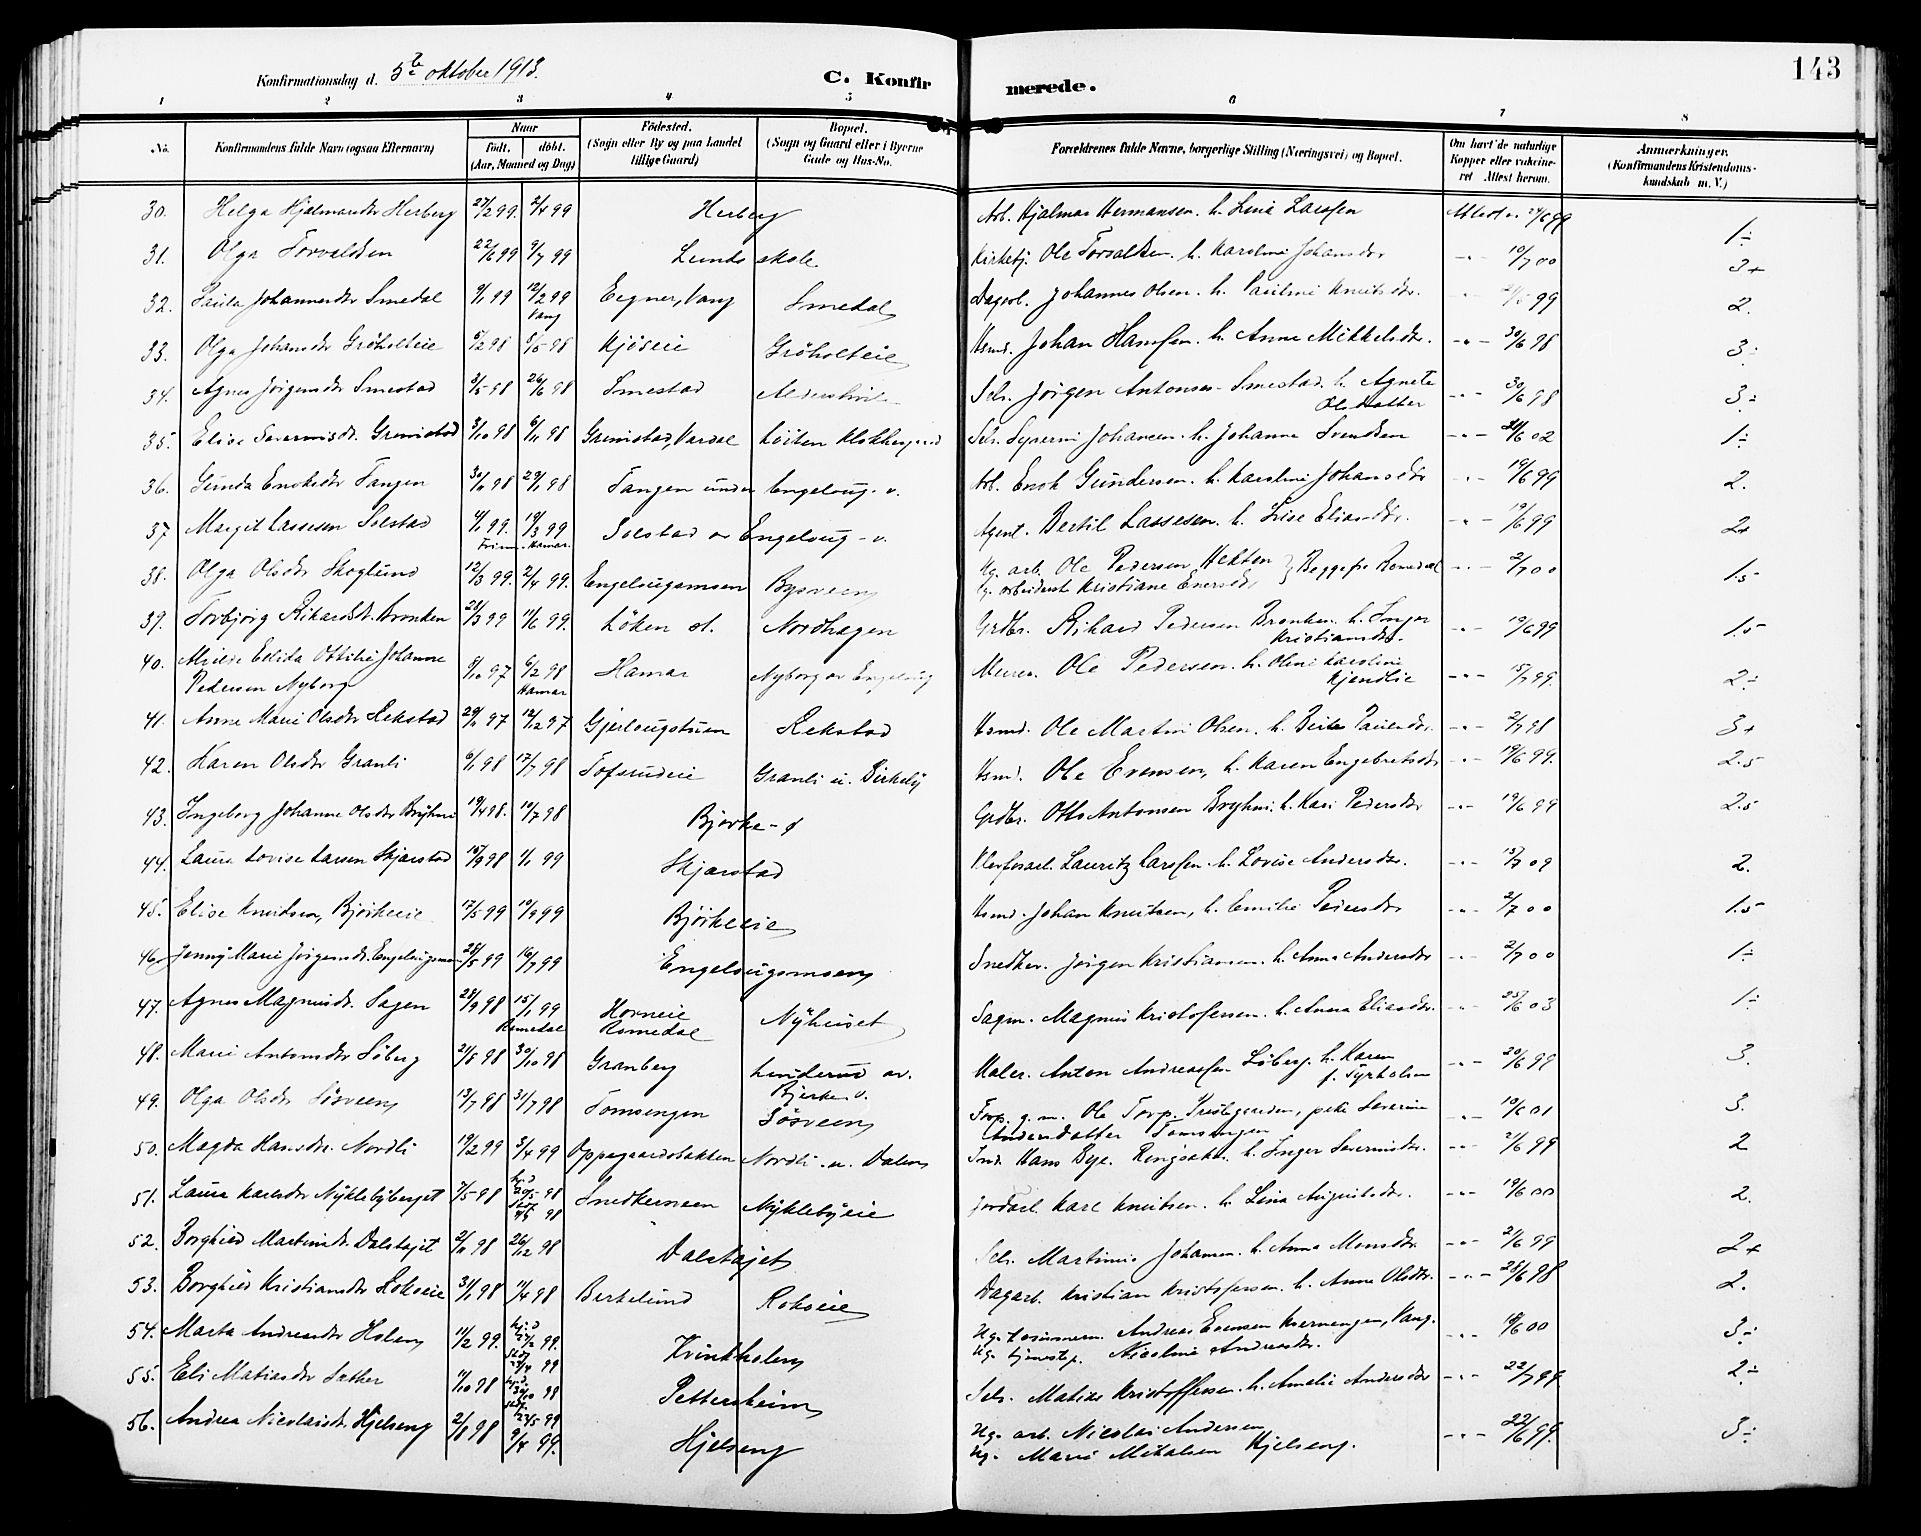 143
Konfirmationsdag d. 5te oktober 1913.
C. Konfirmerede.
1 2 3 4 5 6 7 8
No. Konfirmandens fulde Navn (ogsaa Efternavn) Naar født, døbt. (Aar, Maaned og Dag) Fødested. (Sogn eller By og paa Landet tillige Gaard) Bopæl. (Sogn og Gaard eller i Byerne Gade og Hus-No. Forældrenes fulde Navne, borgerlige Stilling (Næringsvei) og Bopæl. Om havt de naturlige Kopper eller vaksineret Attest herom. Anmærkninger. (Konfirmandens Kristendomskundskab m. V.)
30. Helga Hjalmarsdtr Herberg 27/2 99. 2/4 99 Herberg Arb. Hjalmar Hermansen. h. Lina Larssen Attest v. 1÷
31. Olga Torvaldsen 22/6 99 9/7 99 Lunds skole Kirketj. Ole Torvaldsen. h. Karoline Johansdr -"- 10/7 00 3+
32. Paula Johannesdtr Smedal 9/1 99 12/2 99 Vang Vang Smedal Dagarb. Johannes Olsen. h. Pauline Knutsdtr. 99 2.
33. Olga Johansdtr Gröholteie 5/2 98 98 Kjöseie Gröholteie Husmd. Johan Hanssen. h. Anne Mikkelsdtr. -"- 30/6 98 3÷
34. Agnes Jörgensdtr Smestad 3/5 98 26/6 98 Smestad Selv. Jörgen Antonsen Smestad. h. Agnete Olsdatter -"- 30/6 98 3÷
35. Elise Severinsdtr. Grimstad 3/10 98 6/11 98 Grimstad, Vardal Löiten Klokkergaard Selv. Severin Johansen. h. Johanne Svendsen -"- 02 1÷
36. Gunda Enoksdtr Tangen 30/ 98 98 Tangen under Engeloug. v. Arb. Enok Gundersen. h. Karoline Johansdtr -"- 19/6 99 2.
37 Margit Lassesen Solstad 4/1 99. 19/3 99 Hamar. Solstad av Engeloug - v. Agent. Bertil Lassesen. h. Lise Eliasdtr. -"- 19/6 99 2+
38. Olga Olsdtr Skoglund 12/3 99. 2/4 99. Engelougsmoen Bysveen Ug. arb. Ole Pedersen Hekton Kristiane Evensdtr } Begge fra Romedal -"- 2/7 00 1.5
39. Torbjörg Rikardsdtr. Bronken 99 11/6 99. Löken ö. Nordhagen Grdbr. Rikard Pedersen Bronken. h. Inger Kristiansdtr. -"- 19/6 99 1.5
40. Milde Elida Ottilie Johanne Pedersen Nyborg 9/10 97 6/2 98 Hamar Hamar Nyborg av Engeloug Murer. Ole Pedersen. h. Oline Karoline Kjendlie -"- 15/7 99. 2÷
41. Anne Marie Olsdtr Rekstad 97 12/12 97 Gjerlougstuen Rekstad Husmd. Ole Martin Olsen. h. Berte Paulsdtr. -"- 2/7 98 3+
42. Karen Olsdtr Granli 6/1 98 17/7 98 Tofsrudeie Granli u. Birkeby Husmd. Ole Evensen, h. Karen Engebretsdtr -"- 19/6 99. 2.5
43. Ingeborg Johanne Olsdtr Bryhni 19/4 98. 10/7 98 Bjørke - ø Grdbr. Otto Antonsen Bryhni. h. Kari Pedersdtr -"- 19/6 99 2.5
44. Laura Lovise Larsen Skjærstad 98 1/1 99 Skjærstad Lauritz Larssen. h. Lovise Andersdtr. -"- 15/7 09 2.
45. Elise Knutsen, Björkeeie 17/5 99 99 Björkeeie Husmd. Johan Knutsen, h. Emilie Pedersdtr -"- 2/7 00 1.5
46. Jenny Marie Jörgensdtr. Engelougsmoen 28/5 99 16/7 99 Engelougsmoen Snedker. Jörgen Kristiansen. h. Anna Andersdtr -"- 2/7 00 1÷
47. Agnes Magnusdtr. Sagen 28/9 98 15/1 99 Romedal Horneie Romedal Nyhuset Sagm. Magnus Kristofersen. h. Anna Eliasdtr. -"- 25/6 03 1÷
48. Marie Antonsdtr Löberg 21/8 98 30/10 98 Granberg Lunderud av. Bjerke v. Maler. Anton Andreassen Löberg. h. Karen f. Tyrholm -"- 20/6 99 3.
49. Olga Olsdtr Sösveen 13/7 98 31/7 98 Tomsengen Sösveen Forp. g.m. Ole Torp. Prestegaarden, pike Severine Andersdatter Tomsengen -"- 10/6 01 3.
50. Magda Hansdtr. Nordli 19/2 99 3/4 99 Oppegaardsbakken Nordli. u. Dalen Ind. Hans Bye. Ringsaker. h. Inger Severinsdtr. -"- 21/6 99 2
51. Laura Karlsdtr Nyklebyberget 7/5 98 98 98 Snedkermoen Nyklebyeie Jordarb. Karl Knutsen. h. Lina Augustsdtr. -"- 19/6 00 2.
52. Borghild Martinsdtr. Dalstøiet 98 26/12 98 Dalstøjet Selv. Martinus Johansen. h. Anna Monsdtr -"- 21/6 99 2+
53. Borghild Kristiansdtr Rokseie 31/1 98 11/4 98 Berkelund Rokseie Dagarb. Kristian Kristofersen. h. Anne Olsdtr. -"- 28/6 98 2.
54. Marta Andreasdtr Holen 11/2 99. 99. 99 Kvinkholen Ug. Andreas Evensen Kvernengen, Vang. Ug. tjenestep. Nicoline Andreasdtr. -"- 00 3÷
55. Eli Matiasdtr Sæther 11/10 98 30/10 98 Pettersheim Selv. Matias Kristoffersen. h. Amalie Andersdtr -"- 22/7 99 2÷
56. Andrea Nicolaisdtr. Hjelseng 98 99 9/4 99. Hjelseng Ug. arb. Nicolai Andersen Ug. Marie Mikalsen Hjelseng. -"- 22/6 99. 3÷